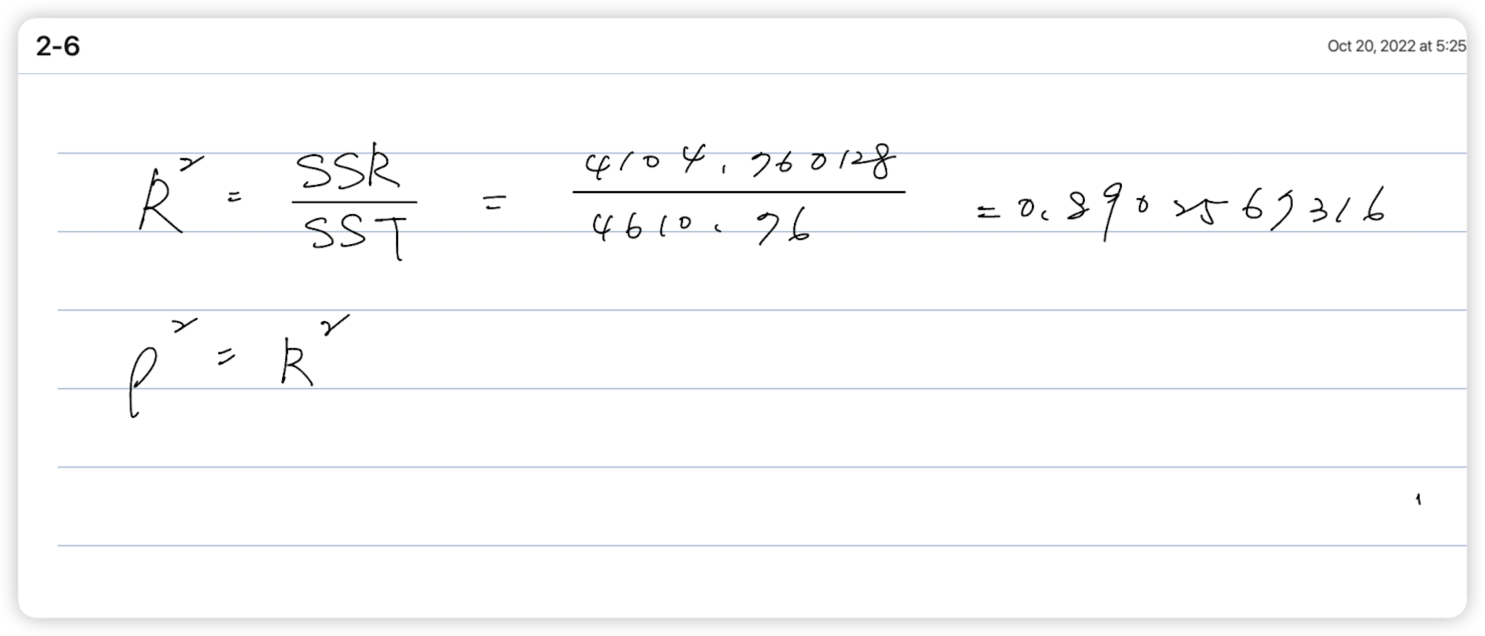 2-6
Oct 20, 2022 at 5:25
R² = SSR/SST = 4104.760128/4610.76 = 0.8902567316
ρ² = R²